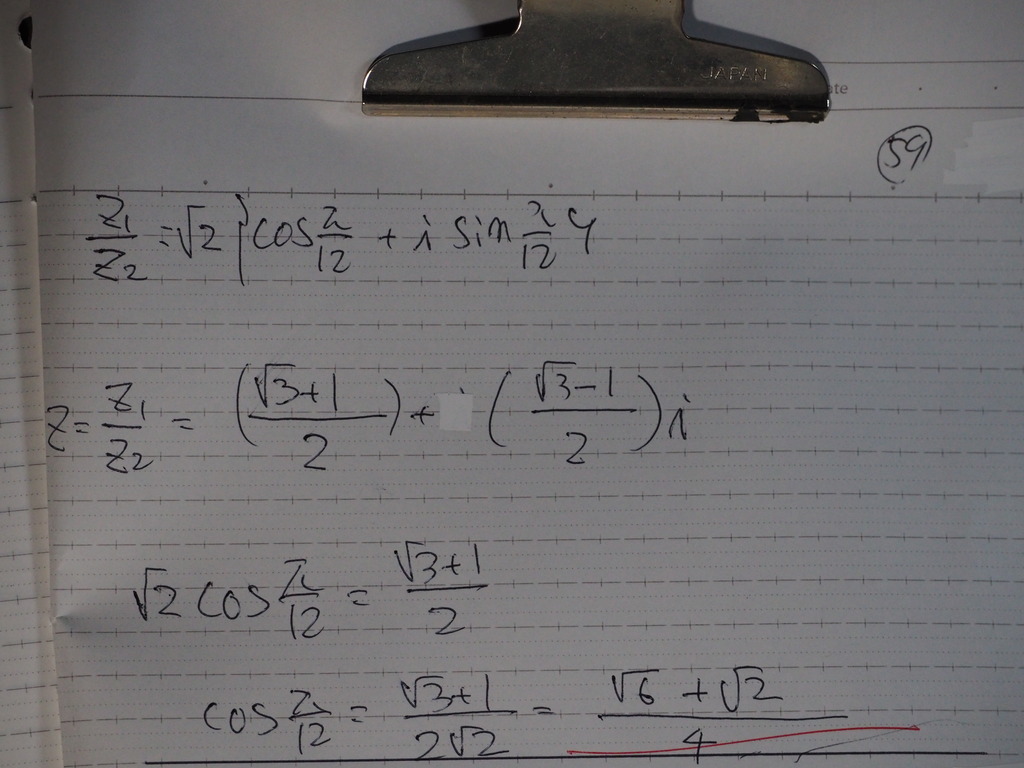 JAPAN
ate
59
z₁/z₂ = √2 { cos π/12 + i sin π/12 }
z = z₁/z₂ = ( (√3+1)/2 ) + ( (√3-1)/2 ) i
√2 cos π/12 = (√3+1)/2
cos π/12 = (√3+1)/(2√2) = (√6 + √2)/4